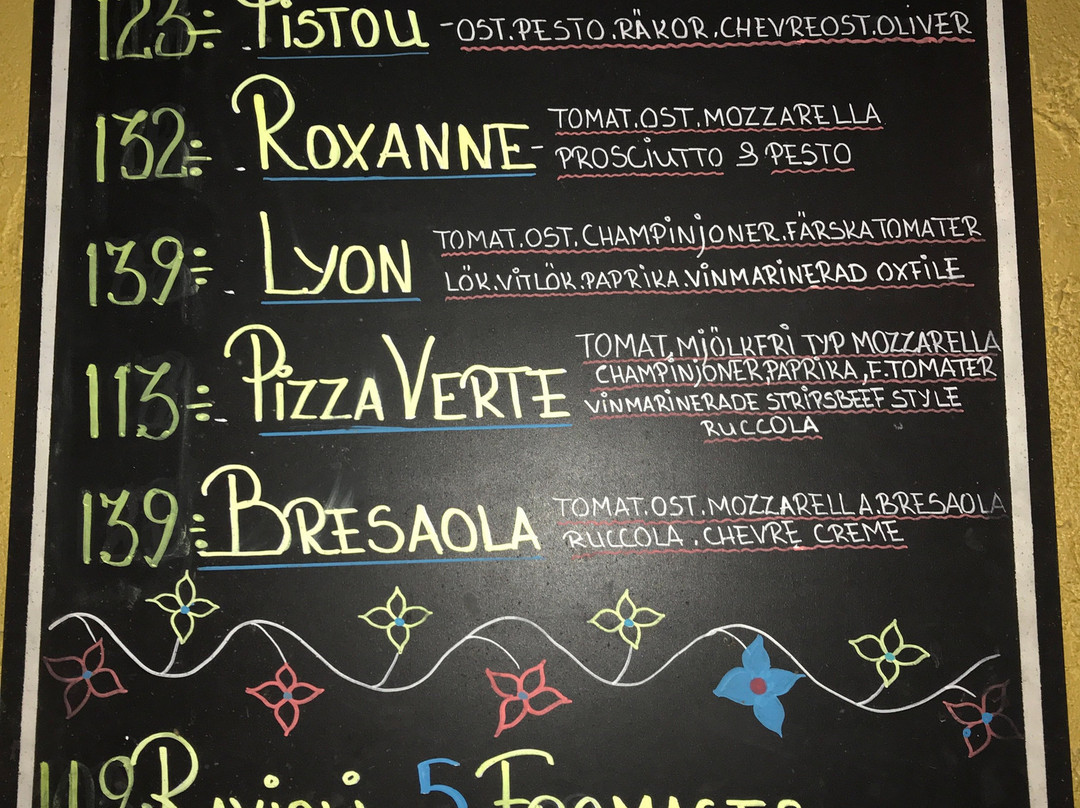 123:- .PISTOU -OST.PESTO.RÄKOR.CHEVREOST.OLIVER
132:- .ROXANNE- TOMAT.OST.MOZZARELLA
PROSCIUTTO & PESTO
139:- LYON TOMAT.OST.CHAMPINJONER.FÄRSKATOMATER
LÖK.VITLÖK.PAPRIKA.VINMARINERAD OXFILE
113:- PIZZA VERTE TOMAT.MJÖLKFRI TYP MOZZARELLA
CHAMPINJONER,PAPRIKA,F.TOMATER
VINMARINERADE STRIPSBEEF STYLE
RUCCOLA
139:- BRESAOLA TOMAT.OST.MOZZARELLA.BRESAOLA
RUCCOLA .CHEVRE CREME
RAVIOLI 5 FORMAGER